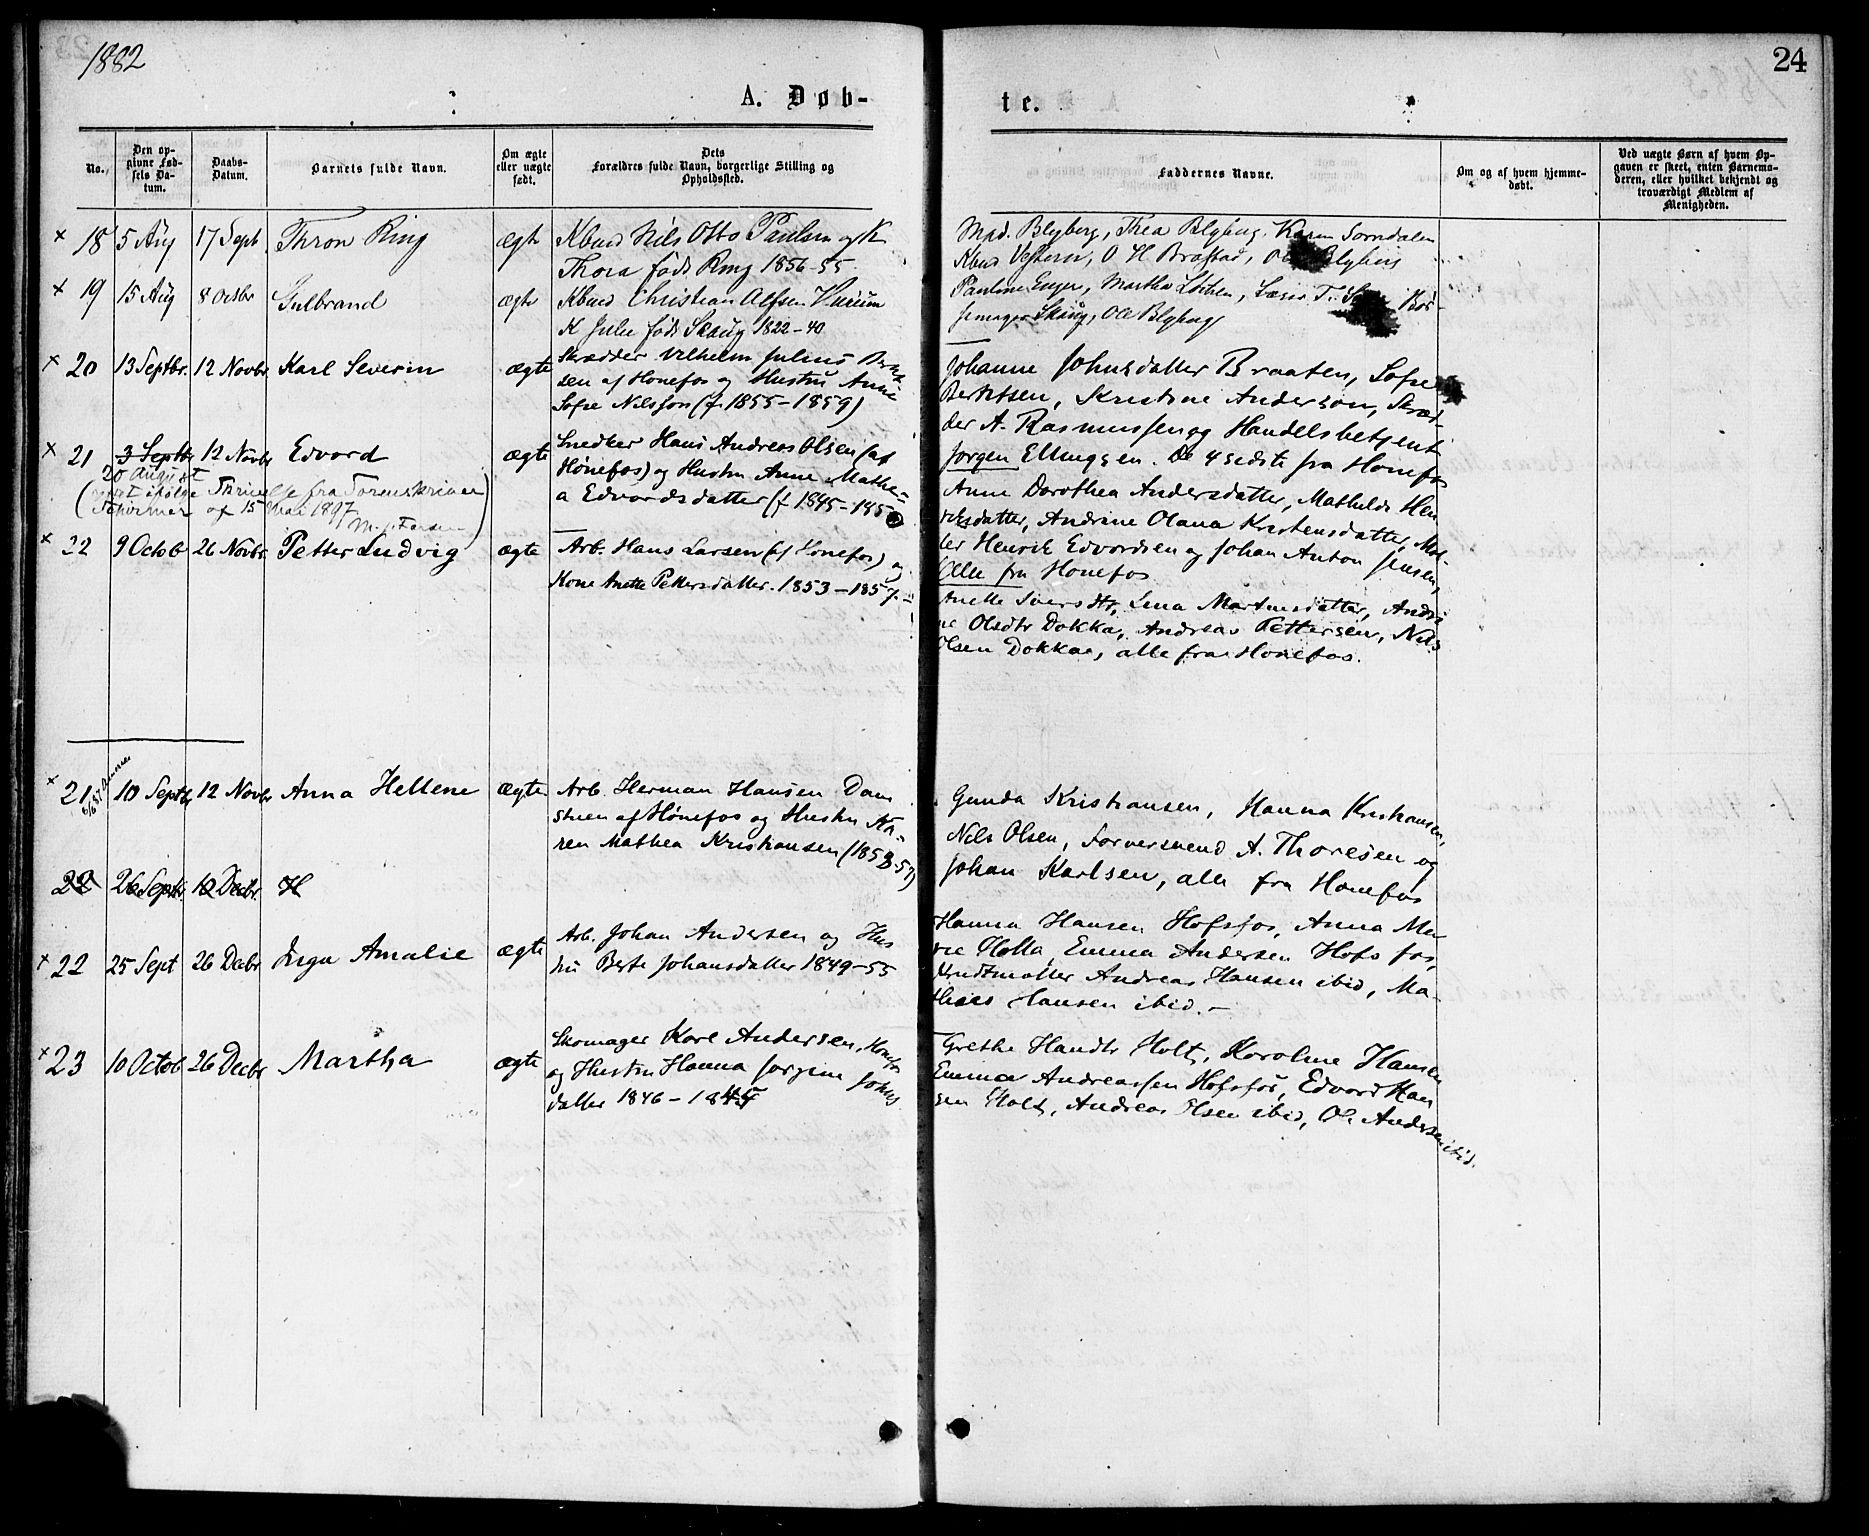 1882
24
A. Døb-
te.
No.
Den op-
givne Fød-
sels Da-
tum.
Daabs-
Datum.
Barnets fulde Navn.
Om ægte
eller uægte
født.
Dets
Forældres fulde Navn, borgerlige Stilling og
Opholdssted.
Faddernes Navne.
Om og af hvem hjemme-
døbt.
Ved uægte Børn af hvem Op-
gaven er skeet, enten Barnemo-
deren, eller hvilket bekjendt og
troværdigt Medlem af
Menigheden.
× 18 5 Aug 17 Sept. Thron Ring ægte
Nils Otto Paulsen og K
Thora født Ring 1856-55
Blyberg, Thea Blyberg, Karen
O H
× 19 15 Aug 8 Octbr Gulbrand ægte
Christian Alfsen
K Julie født Skaug 1822-40
Pauline Enger, Martha
Skaug, Ole Blyberg
× 20 13 Septbr. 12 Novbr Karl Severin ægte
Skrædder Vilhelm Julius
sen af Hønefos og Hustru Anne
Sofie Nilsson (f. 1855-1859)
Johanne Johnsdatter Braaten, Sofie
Berntsen, Kristine Anderson, Skræd-
der A. Rasmussen og Handelsbetjent
Jørgen Ellingsen. De 4 sidste fra Hønefos
× 21 3 Septbr 12 Novbr Edvard ægte
20 August
(født ifølge Skrivelse fra Sorenskriver
af 15 Mai 1897
Snedker Hans Andreas Olsen (af
Hønefos) og Hustru Anne Mathe-
a Edvardsdatter (f. 1845-185
Anne Dorothea Andersdatter, Mathilde Hen
riksdatter, Andrine Olava Kristensdatter, Møl-
ler Henrik Edvardsen og Johan Anton Jensen,
Alle fra Hønefos
× 22 9 Octob 26 Novbr. Petter Ludvig ægte
Arb. Hans Larsen (af Hønefos) og
Kone Anette Pettersdatter. 1853-1857.
Anette Iversdtr, Lena Martinsdatter, Andri
ne Olsdtr Dokka, Andreas Pettersen, Nils
Olsen Dokka, alle fra Hønefos.
× 21 10 Septbr 12 Novbr Anna Hellene ægte
Arb. Herman Hansen Dam
stuen af Hønefos og Hustru Ka-
ren Mathea Kristiansen (1853-57)
Gunda Kristiansen, Hanna Kristiansen,
Nils Olsen, Farversvend A. Thoresen og
Johan Karlsen, alle fra Hønefos
22 26 Septbr. 10 Decbr. H
× 22 25 Sept 26 Decbr Inga Amalie ægte
Arb. Johan Andersen og Hus
tru Berte Johansdatter 1849-55
Hanna Hansen Hofsfos, Anna Ma
rie Holla, Emma Andersen Hofsfos,
Andreas Hansen ibid, Ma-
thias Hansen ibid.-
× 23 10 Octob 26 Decbr Martha ægte
Skomager Karl Andersen, Hønefos
og Hustru Hanna Jorgine Johns
datter 1846-1845
Grethe Hansdtr Holt, Karoline Hansen
Emma Andreassen Hofsfos, Edvard Han
sen Holt, Andreas Olsen ibid, Ole Andersen ibid.